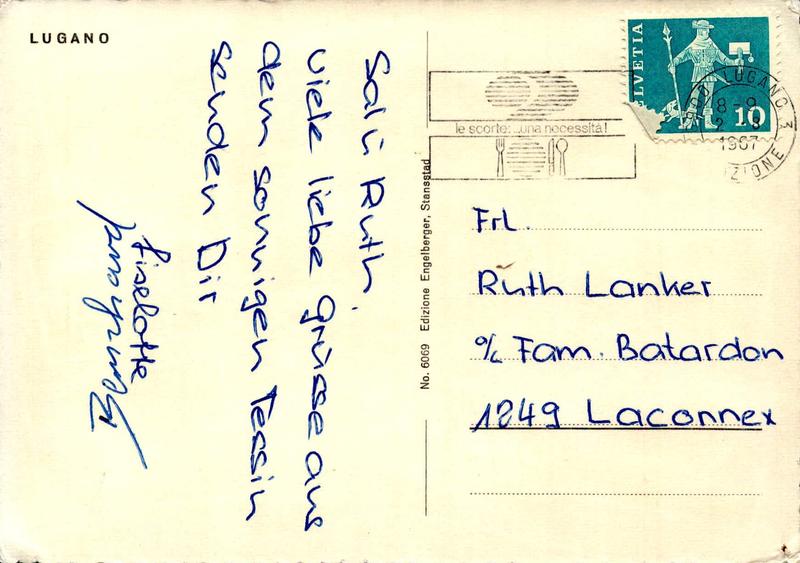 LUGANO
Sali Ruth,
viele liebe Grüsse aus
dem sonnigen Tessin
senden Dir
Liselotte
No. 6069 Edizione Engelberger, Stansstad
le scorte: ...una necessità!
HELVETIA
10
LUGANO 3
8-9
1967
Frl.
Ruth Lanker
c/o Fam. Batardon
1249 Laconnex